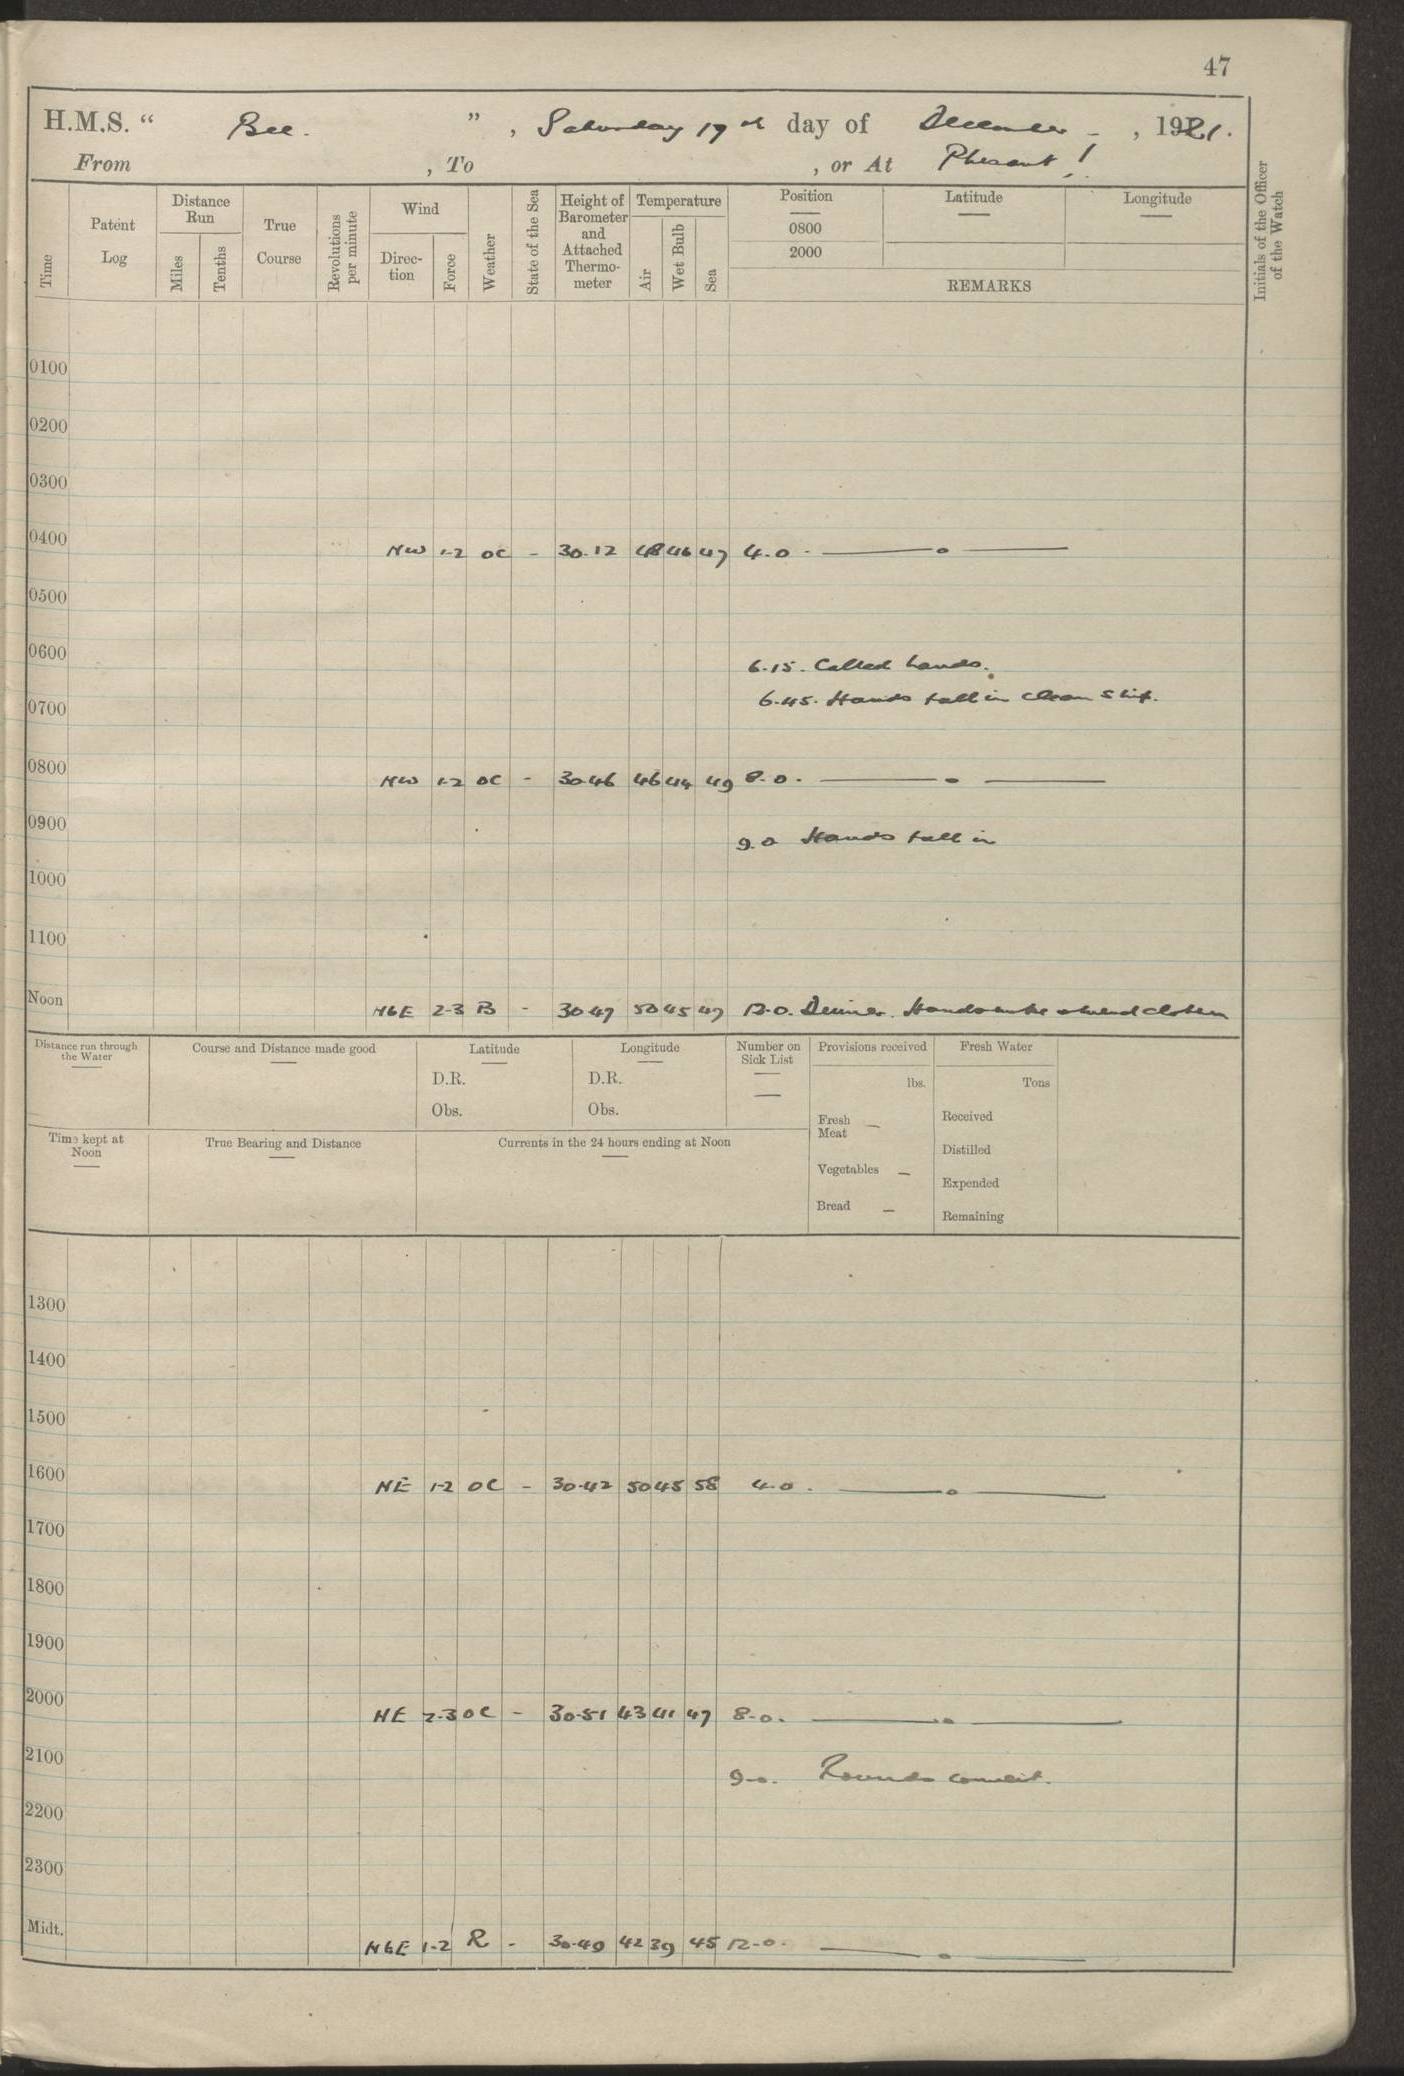 47
H.M.S. “ Bee. ” , Saturday 17th day of December , 1921.
From , To , or At
Time
Patent Log
Distance Run
Miles
Tenths
True Course
Revolutions per minute
Wind
Direc-tion
Force
Weather
State of the Sea
Height of Barometer and Attached Thermo-meter
Temperature
Air
Wet Bulb
Sea
Position
0800
2000
Latitude
Longitude
REMARKS
Initials of the Officer of the Watch
0100
0200
0300
0400 NW 1-2 OC - 30.12 48 46 47 4.0 .
0500
0600
6.15. Called hands.
6.45. Hands fall in clean ship.
0700
0800 NW 1-2 OC - 30.46 46 44 49 8.0.
0900
9.0 Hands fall in
1000
1100
Noon NbE 2-3 B - 30.47 50 45 47 12.0. Dinner. Hands make & mend clothes
Distance run through the Water
Course and Distance made good
Latitude
D.R.
Obs.
Longitude
D.R.
Obs.
Number on Sick List
Provisions received
lbs.
Fresh Meat
Vegetables
Bread
Fresh Water
Tons
Received
Distilled
Expended
Remaining
Time kept at Noon
True Bearing and Distance
Currents in the 24 hours ending at Noon
1300
1400
1500
1600 NE 1-2 OC - 30.42 50 45 58 4.0 .
1700
1800
1900
2000 NE 2-3 OC - 30.51 43 41 47 8-0.
2100
9-0. Rounds correct.
2200
2300
Midt. NbE 1-2 R - 30.49 42 39 45 12-0.